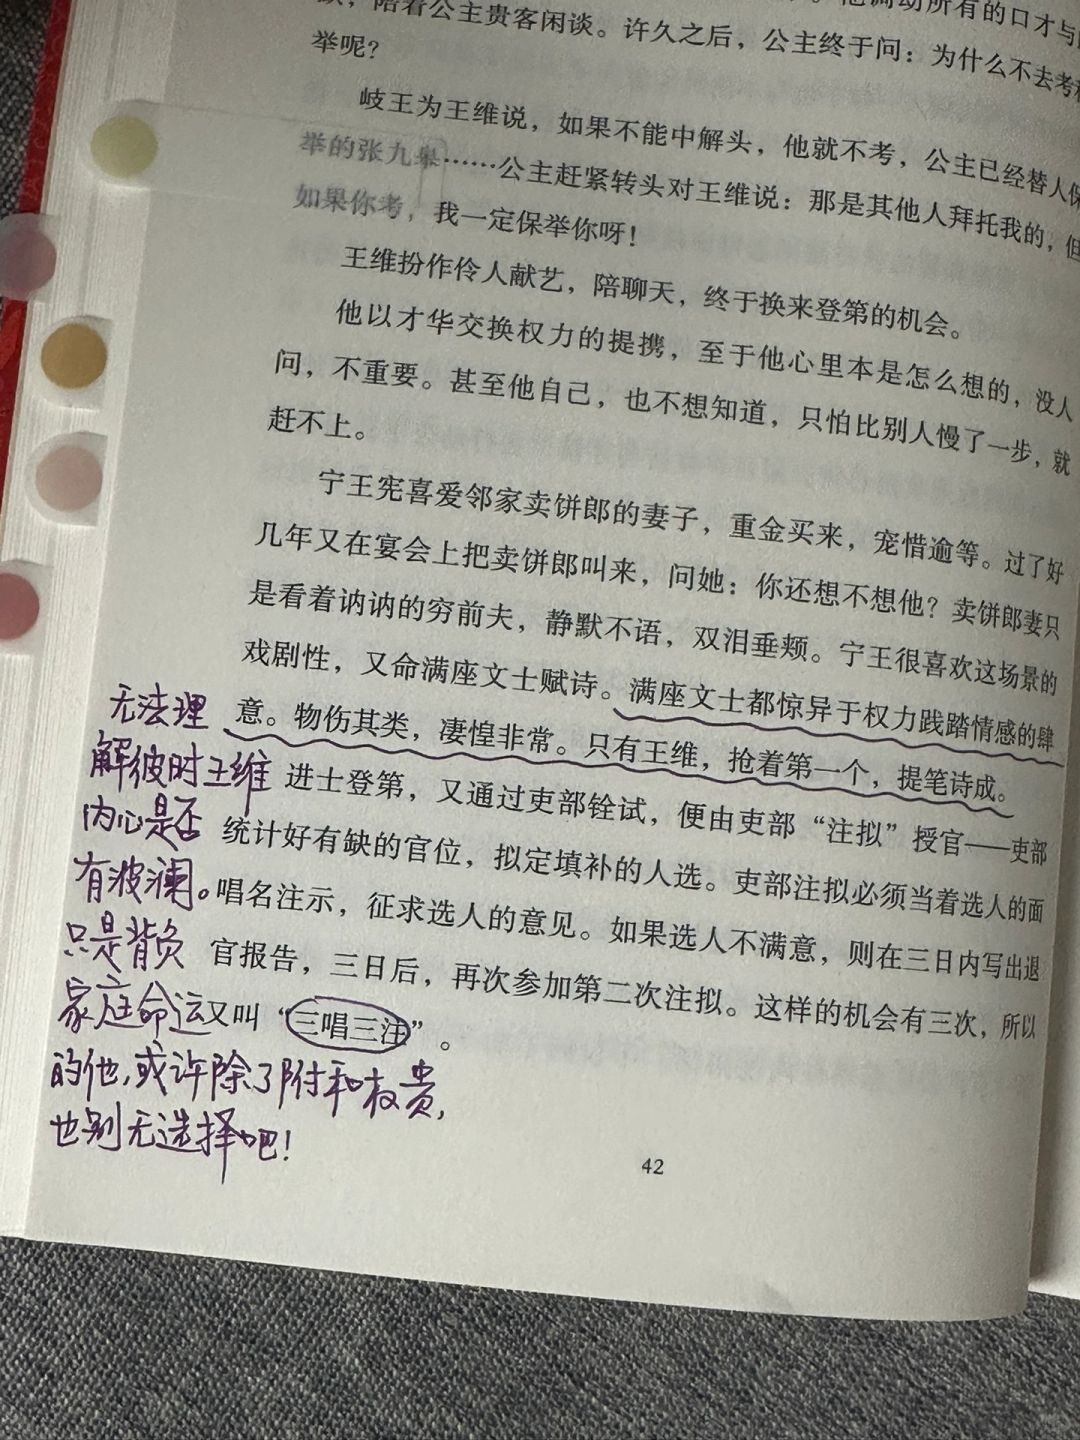 陪着公主贵客闲谈。许久之后，公主终于问：为什么不去考科
举呢？
岐王为王维说，如果不能中解头，他就不考，公主已经替人保
举的张九皋……公主赶紧转头对王维说：那是其他人拜托我的，但
如果你考，我一定保举你呀！
王维扮作伶人献艺，陪聊天，终于换来登第的机会。
他以才华交换权力的提携，至于他心里本是怎么想的，没人
问，不重要。甚至他自己，也不想知道，只怕比别人慢了一步，就
赶不上。
宁王宪喜爱邻家卖饼郎的妻子，重金买来，宠惜逾等。过了好
几年又在宴会上把卖饼郎叫来，问她：你还想不想他？卖饼郎妻只
是看着讷讷的穷前夫，静默不语，双泪垂颊。宁王很喜欢这场景的
戏剧性，又命满座文士赋诗。满座文士都惊异于权力践踏情感的肆
意。物伤其类，凄惶非常。只有王维，抢着第一个，提笔诗成。
进士登第，又通过吏部铨试，便由吏部“注拟”授官——吏部
统计好有缺的官位，拟定填补的人选。吏部注拟必须当着选人的面
唱名注示，征求选人的意见。如果选人不满意，则在三日内写出退
官报告，三日后，再次参加第二次注拟。这样的机会有三次，所以
又叫“三唱三注”。
无法理
解彼时王维
内心是否
有波澜。
只是背负
家庭命运
的他，或许除了附和权贵，
也别无选择吧！
42